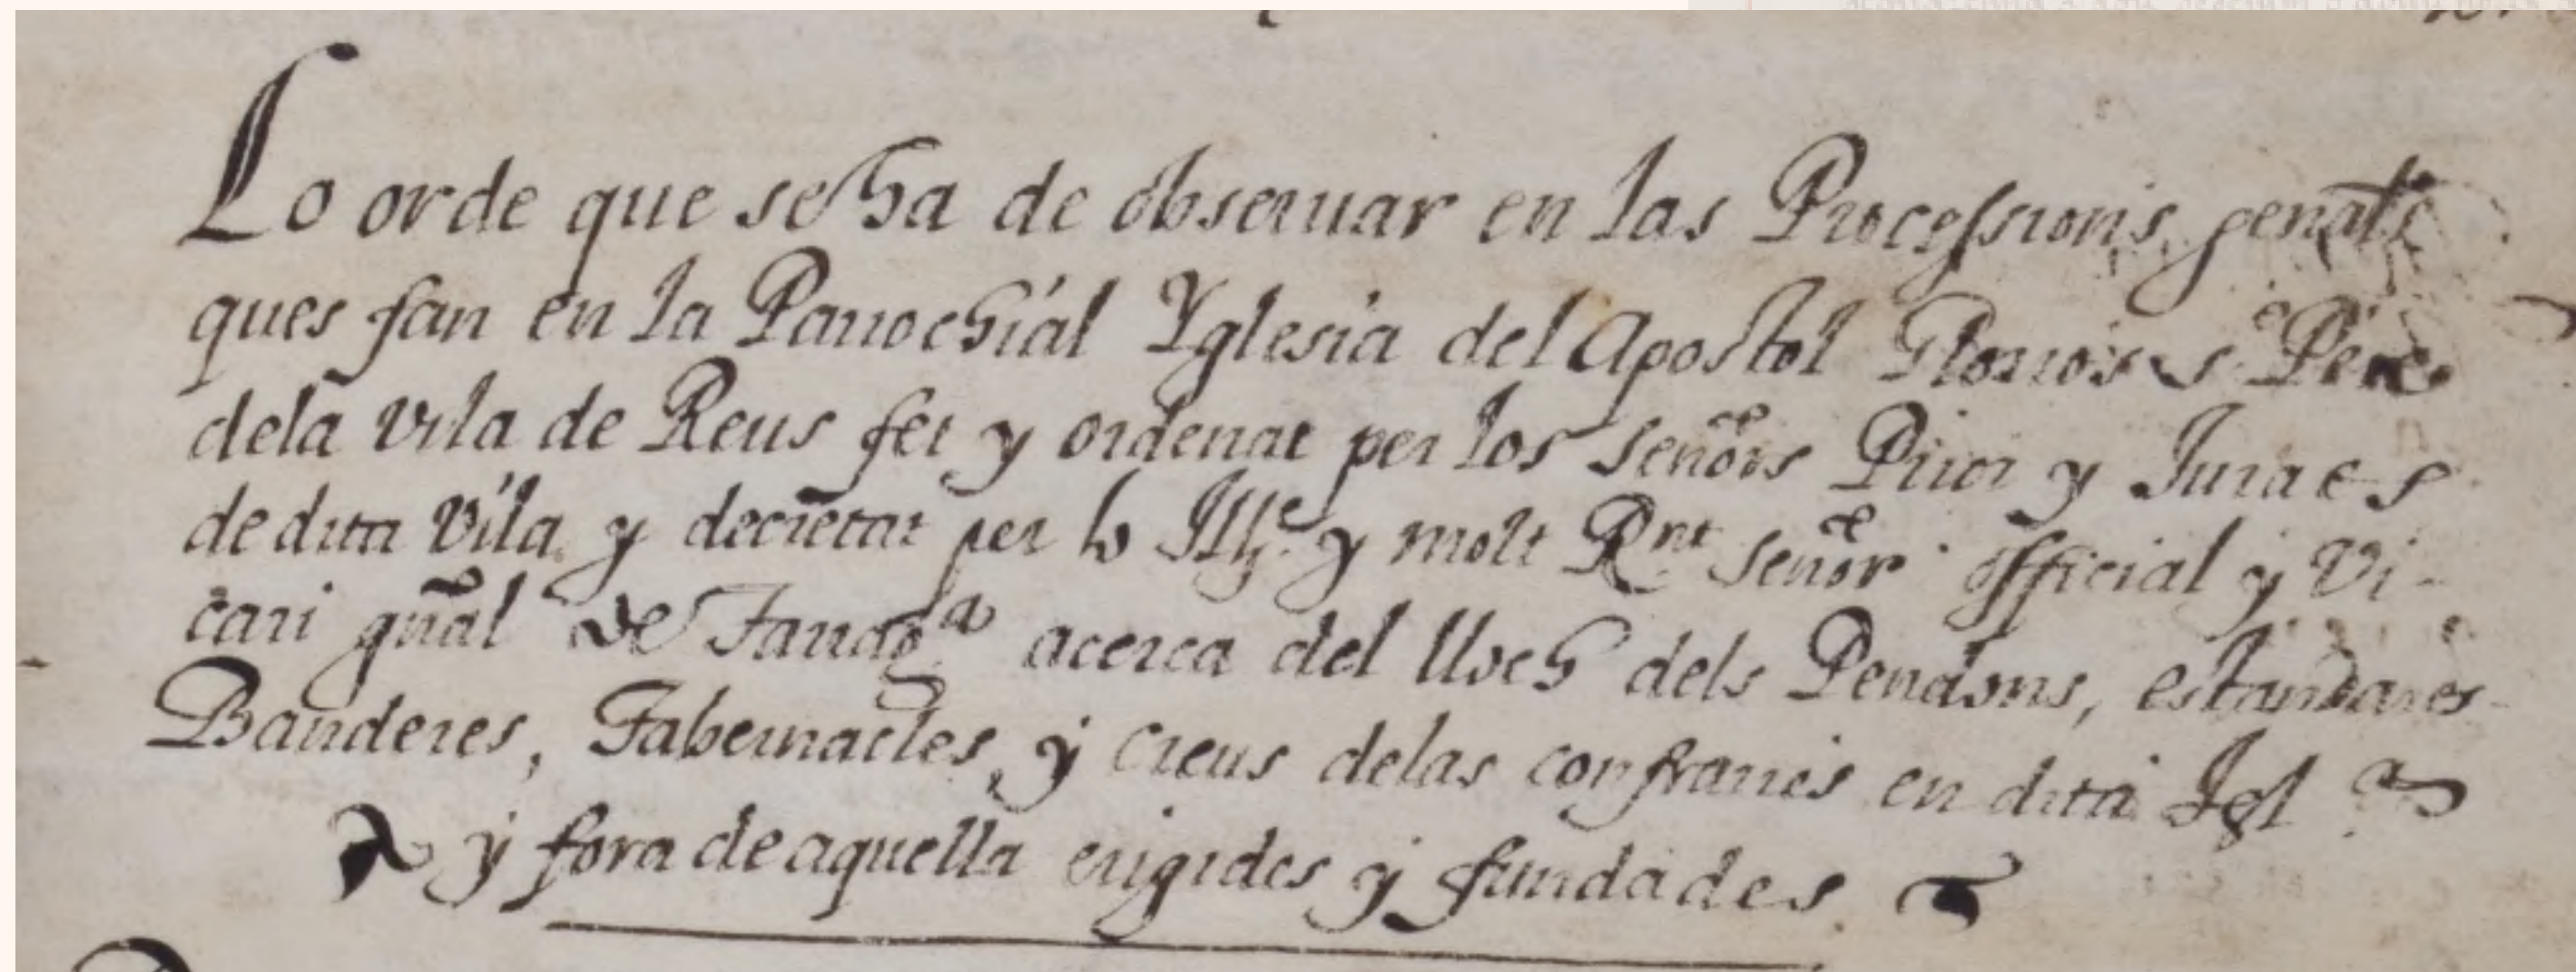 Lo orde que se ha de obseruar en las Processions genals
ques fan en la Parrochial Yglesia del Apostol Glorios S. Pere
dela vila de Reus fet y ordenat per los señors Prior y Jurats
de dita Vila y decretat per lo Illre. y molt Rnt señor official y Vi-
cari gñal de Tarrag.a acerca del lloch dels Pendons, estandarts
Banderes, Tabernacles, y creus delas confraries en dita Igl.a
y fora de aquella erigides y fundades